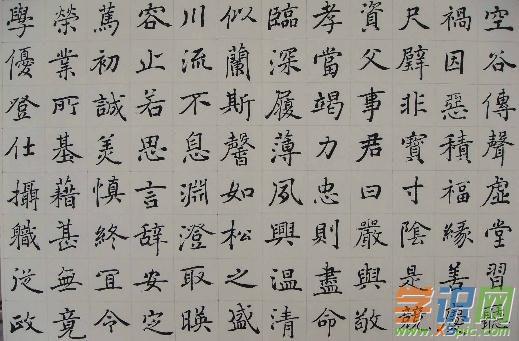 空谷傳聲虛堂習聽
禍因惡積福緣善慶
尺璧非寶寸陰是競
資父事君曰嚴與敬
孝當竭力忠則盡命
臨深履薄夙興温清
似蘭斯馨如松之盛
川流不息淵澄取暎
容止若思言辞安定
篤初誠美慎終宜令
榮業所基藉甚無竟
學優登仕攝職從政
学识网